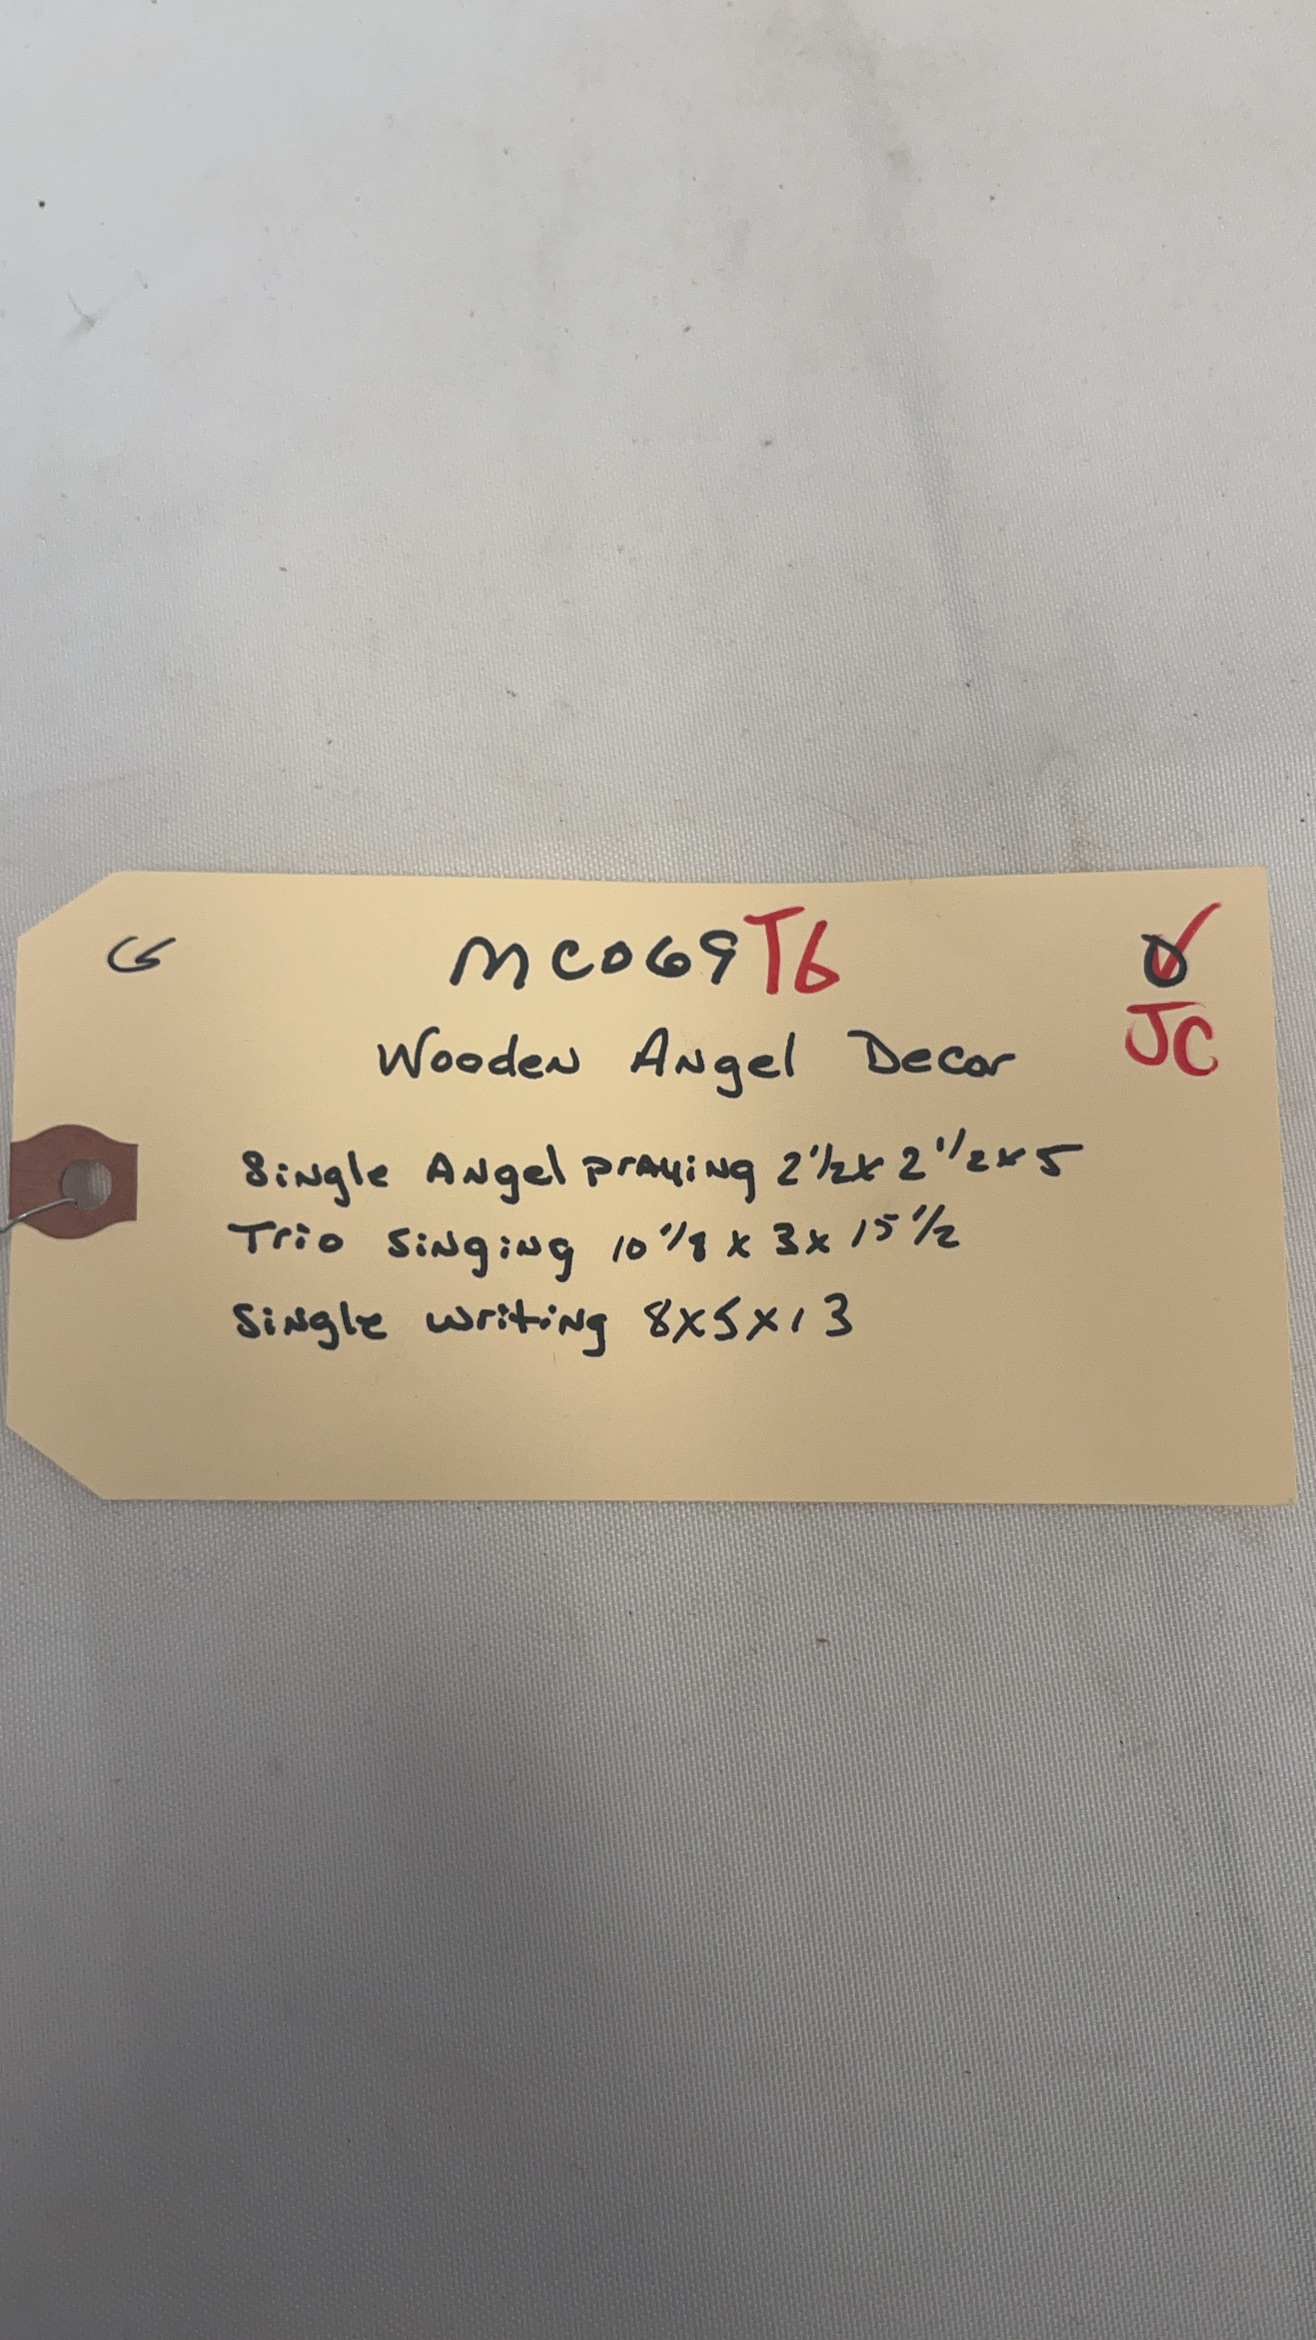 G MC069 T6 ✓
JC
Wooden Angel Decor
Single Angel praying 2 1/2 x 2 1/2 x 5
Trio Singing 10 1/8 x 3 x 15 1/2
Single writing 8x5x13